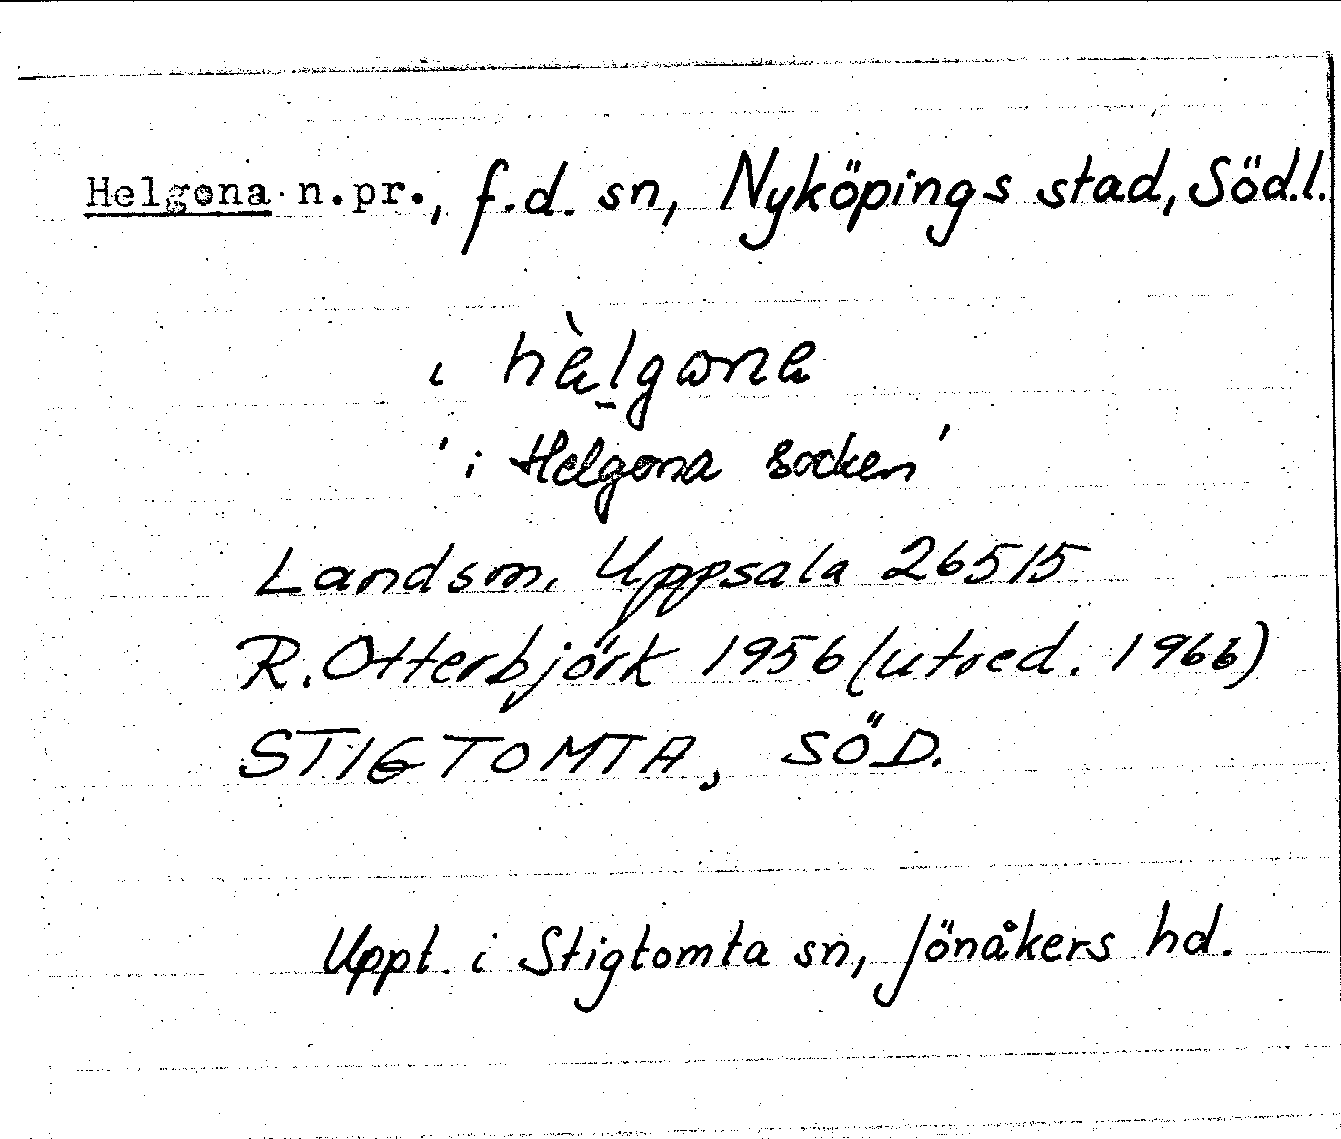 Helgona n.pr., f.d. sn, Nyköpings stad, Södl.
i hèlgɷna
'i Helgona socken'
Landsm. Uppsala 26515
R. Otterbjörk 1956 (utred. 1966)
STIGTOMTA, SÖD.
Uppt. i Stigtomta sn, Jönåkers hd.